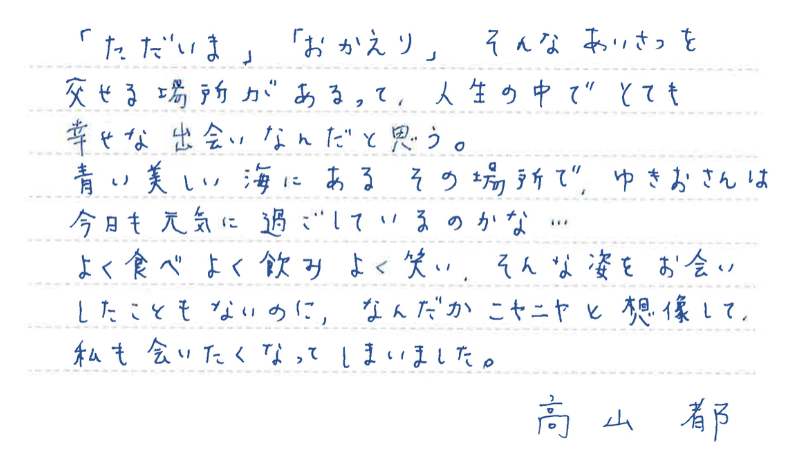 「ただいま」「おかえり」 そんなあいさつを
交せる場所があるって、人生の中でとても
幸せな出会いなんだと思う。
青い美しい海にある その場所で、ゆきおさんは
今日も元気に過ごしているのかな…
よく食べ よく飲み よく笑い、そんな姿をお会い
したこともないのに、なんだかニヤニヤと想像して、
私も会いたくなってしまいました。
高山 都